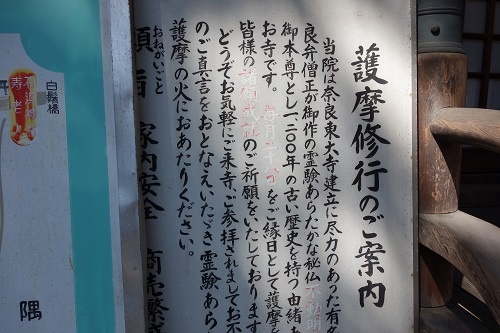 護摩修行のご案内
当院は奈良東大寺建立に尽力のあった有名
良弁僧正が御作の霊験あらたかな秘仏
御本尊とし一二〇〇年の古い歴史を持つ由緒あ
お寺です。毎月二十八日をご縁日として護摩
皆様の諸願成就のご祈願をいたしております
どうぞお気軽にご来寺、ご参拝されましてお不
のご真言をおとなえいただき霊験あら
護摩の火におあたりください。
おねがいごと
願旨 家内安全 商売繁
白鬚橋
寿老
隅